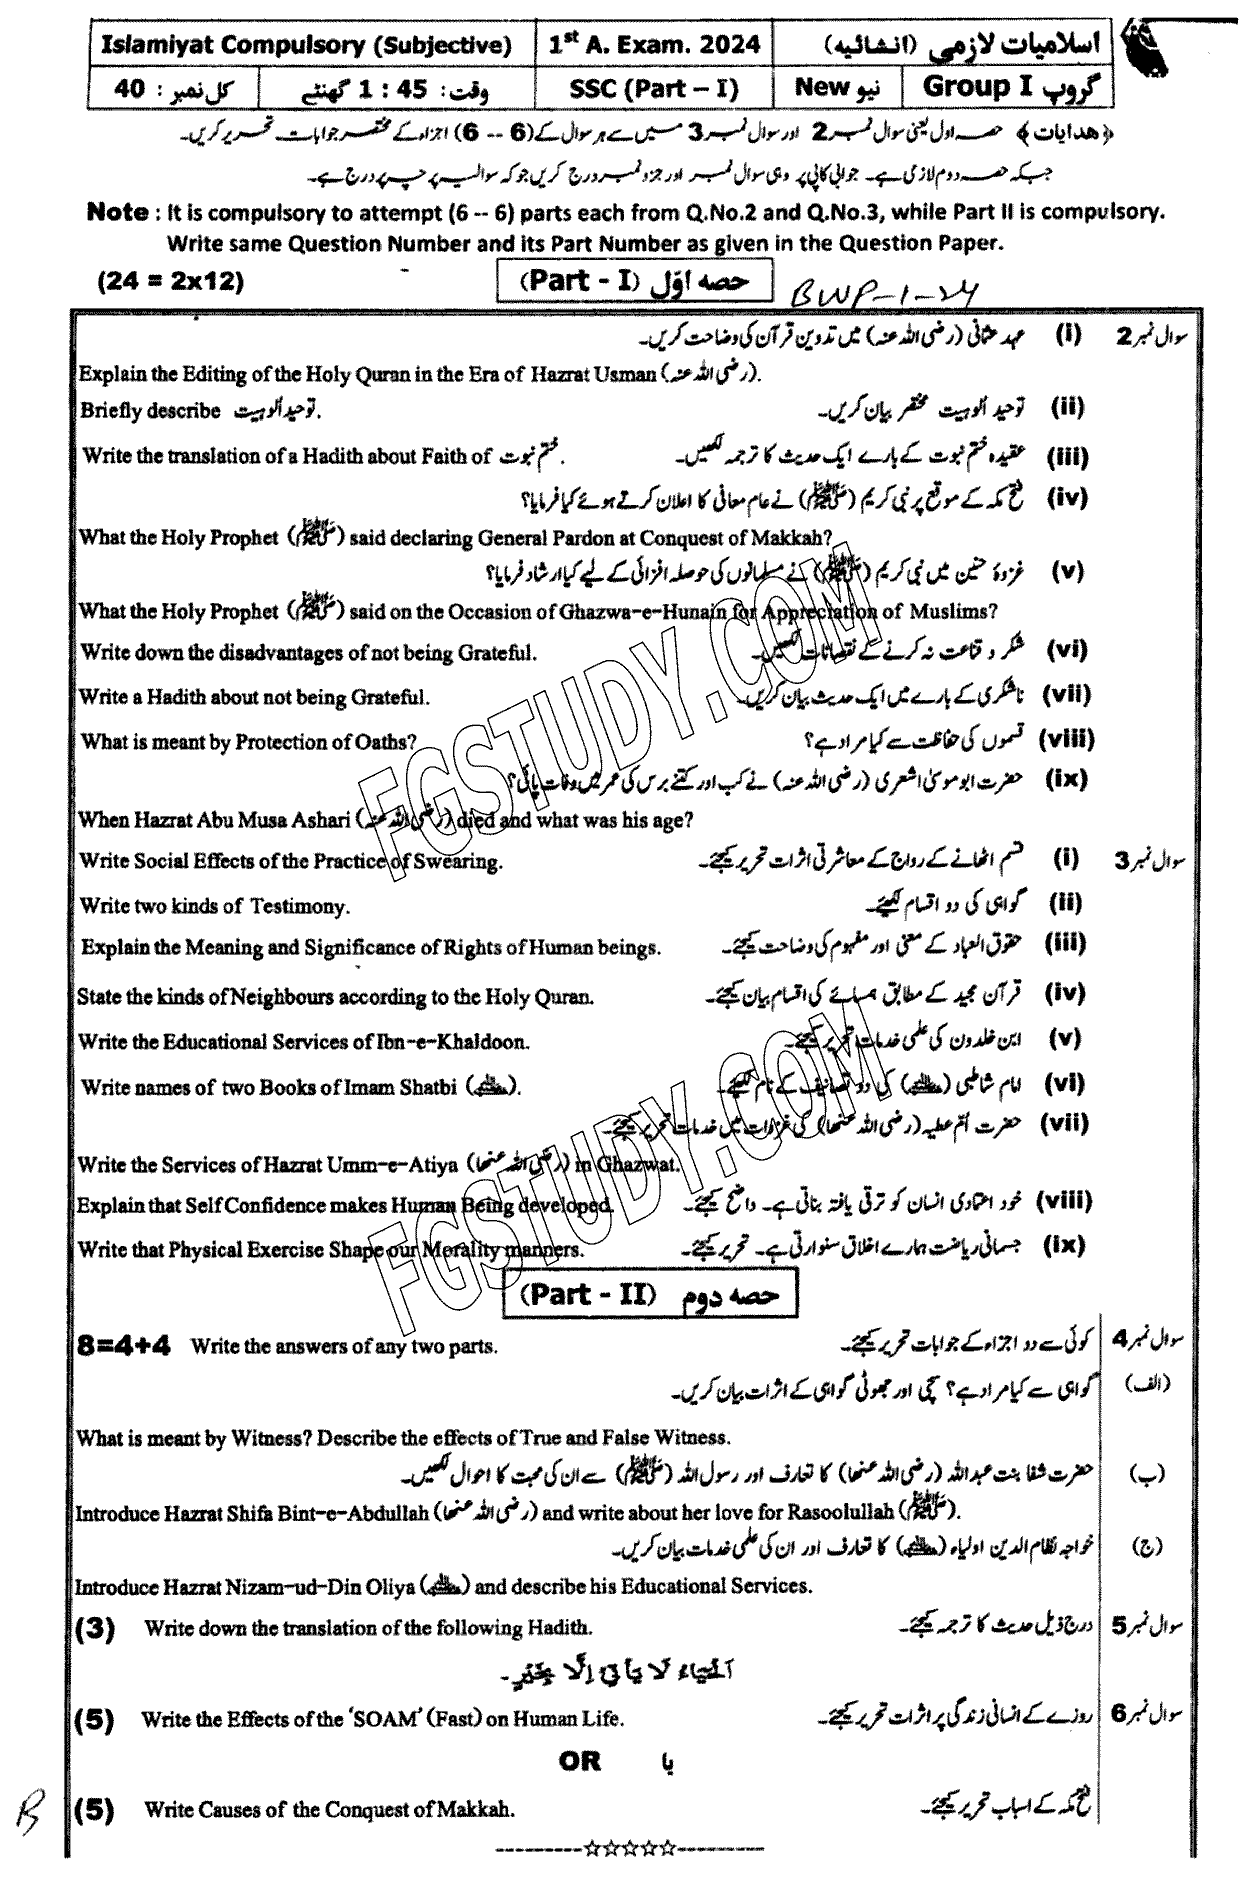 Islamiyat Compulsory (Subjective) 1st A. Exam. 2024 اسلامیات لازمی (انشائیہ)
کل نمبر: 40 وقت: 1:45 گھنٹے SSC (Part – I) New نیو Group I گروپ
﴿هدایات﴾ حصہ اول یعنی سوال نمبر 2 اور سوال نمبر 3 میں سے ہر سوال کے (6 -- 6) اجزاء کے مختصر جوابات تحریر کریں۔
جبکہ حصہ دوم لازمی ہے۔ جوابی کاپی پر وہی سوال نمبر اور جزو نمبر درج کریں جو کہ سوالیہ پرچے پر درج ہے۔
Note : It is compulsory to attempt (6 -- 6) parts each from Q.No.2 and Q.No.3, while Part II is compulsory.
Write same Question Number and its Part Number as given in the Question Paper.
(24 = 2x12) (Part - I) حصہ اوّل BWP-1-24
سوال نمبر 2 (i) عہد عثمانی (رضی اللہ عنہ) میں تدوین قرآن کی وضاحت کریں۔
Explain the Editing of the Holy Quran in the Era of Hazrat Usman (رضی اللہ عنہ).
Briefly describe توحید اُلوہیت. (ii) توحید اُلوہیت مختصر بیان کریں۔
Write the translation of a Hadith about Faith of ختم نبوت. (iii) عقیدہ ختم نبوت کے بارے ایک حدیث کا ترجمہ لکھیں۔
(iv) فتح مکہ کے موقع پر نبی کریم (ﷺ) نے عام معافی کا اعلان کرتے ہوئے کیا فرمایا؟
What the Holy Prophet (ﷺ) said declaring General Pardon at Conquest of Makkah?
(v) غزوۂ حنین میں نبی کریم (ﷺ) نے مسلمانوں کی حوصلہ افزائی کے لیے کیا ارشاد فرمایا؟
What the Holy Prophet (ﷺ) said on the Occasion of Ghazwa-e-Hunain for Appreciation of Muslims?
Write down the disadvantages of not being Grateful. (vi) شکر و قناعت نہ کرنے کے نقصانات لکھیں۔
Write a Hadith about not being Grateful. (vii) ناشکری کے بارے میں ایک حدیث بیان کریں۔
What is meant by Protection of Oaths? (viii) قسموں کی حفاظت سے کیا مراد ہے؟
(ix) حضرت ابو موسیٰ اشعری (رضی اللہ عنہ) نے کب اور کتنے برس کی عمر میں وفات پائی؟
When Hazrat Abu Musa Ashari (رضی اللہ عنہ) died and what was his age?
Write Social Effects of the Practice of Swearing. سوال نمبر 3 (i) قسم اٹھانے کے رواج کے معاشرتی اثرات تحریر کیجئے۔
Write two kinds of Testimony. (ii) گواہی کی دو اقسام لکھیے۔
Explain the Meaning and Significance of Rights of Human beings. (iii) حقوق العباد کے معنی اور مفہوم کی وضاحت کیجئے۔
State the kinds of Neighbours according to the Holy Quran. (iv) قرآن مجید کے مطابق ہمسائے کی اقسام بیان کیجئے۔
Write the Educational Services of Ibn-e-Khaldoon. (v) ابن خلدون کی علمی خدمات تحریر کیجئے۔
Write names of two Books of Imam Shatbi (رحمۃ اللہ علیہ). (vi) امام شاطبی (رحمۃ اللہ علیہ) کی دو تصانیف کے نام لکھیے۔
(vii) حضرت اُمّ عطیہ (رضی اللہ عنھا) کی غزوات میں خدمات تحریر کیجئے۔
Write the Services of Hazrat Umm-e-Atiya (رضی اللہ عنھا) in Ghazwat.
Explain that Self Confidence makes Human Being developed. (viii) خود اعتمادی انسان کو ترقی یافتہ بناتی ہے۔ واضح کیجئے۔
Write that Physical Exercise Shape our Morality manners. (ix) جسمانی ریاضت ہمارے اخلاق سنوارتی ہے۔ تحریر کیجئے۔
(Part - II) حصہ دوم
8=4+4 Write the answers of any two parts. سوال نمبر 4 کوئی سے دو اجزاء کے جوابات تحریر کیجئے۔
(الف) گواہی سے کیا مراد ہے؟ سچی اور جھوٹی گواہی کے اثرات بیان کریں۔
What is meant by Witness? Describe the effects of True and False Witness.
(ب) حضرت شفا بنت عبداللہ (رضی اللہ عنھا) کا تعارف اور رسول اللہ (ﷺ) سے ان کی محبت کا احوال لکھیں۔
Introduce Hazrat Shifa Bint-e-Abdullah (رضی اللہ عنھا) and write about her love for Rasoolullah (ﷺ).
(ج) خواجہ نظام الدین اولیاء (رحمۃ اللہ علیہ) کا تعارف اور ان کی علمی خدمات بیان کریں۔
Introduce Hazrat Nizam-ud-Din Oliya (رحمۃ اللہ علیہ) and describe his Educational Services.
(3) Write down the translation of the following Hadith. سوال نمبر 5 درج ذیل حدیث کا ترجمہ کیجئے۔
اَلْحَیَاءُ لَا یَأْتِیْ اِلَّا بِخَیْرٍ۔
(5) Write the Effects of the 'SOAM' (Fast) on Human Life. سوال نمبر 6 روزے کے انسانی زندگی پر اثرات تحریر کیجئے۔
OR یا
B (5) Write Causes of the Conquest of Makkah. فتح مکہ کے اسباب تحریر کیجئے۔
----------☆☆☆☆☆----------
FGSTUDY.COM
FGSTUDY.COM